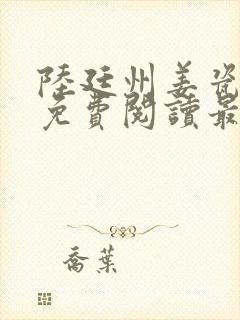 陸廷州姜瓷
免費閱讀最
喬葉